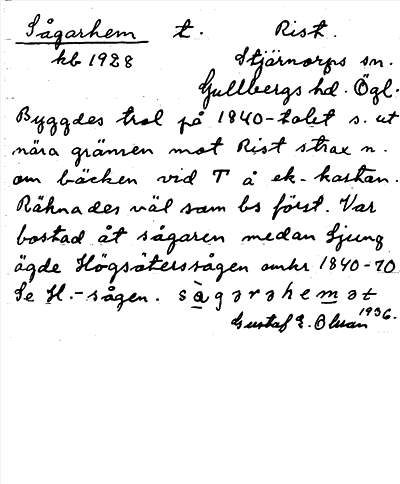 Sågarhem t. Rist.
kb 1928 Stjärnorps sn.
Gullbergs hd. Ögl.
Byggdes trol på 1840-talet s. ut
nära gränsen mot Rist strax n.
om bäcken vid T å ek-kartan.
Räknades väl som bs först. Var
bostad åt sågaren medan Ljung
ägde Högsäterssågen omkr 1840-70
Se H.-sågen. sàgarahemat
Gustaf E. Olsson 1936.